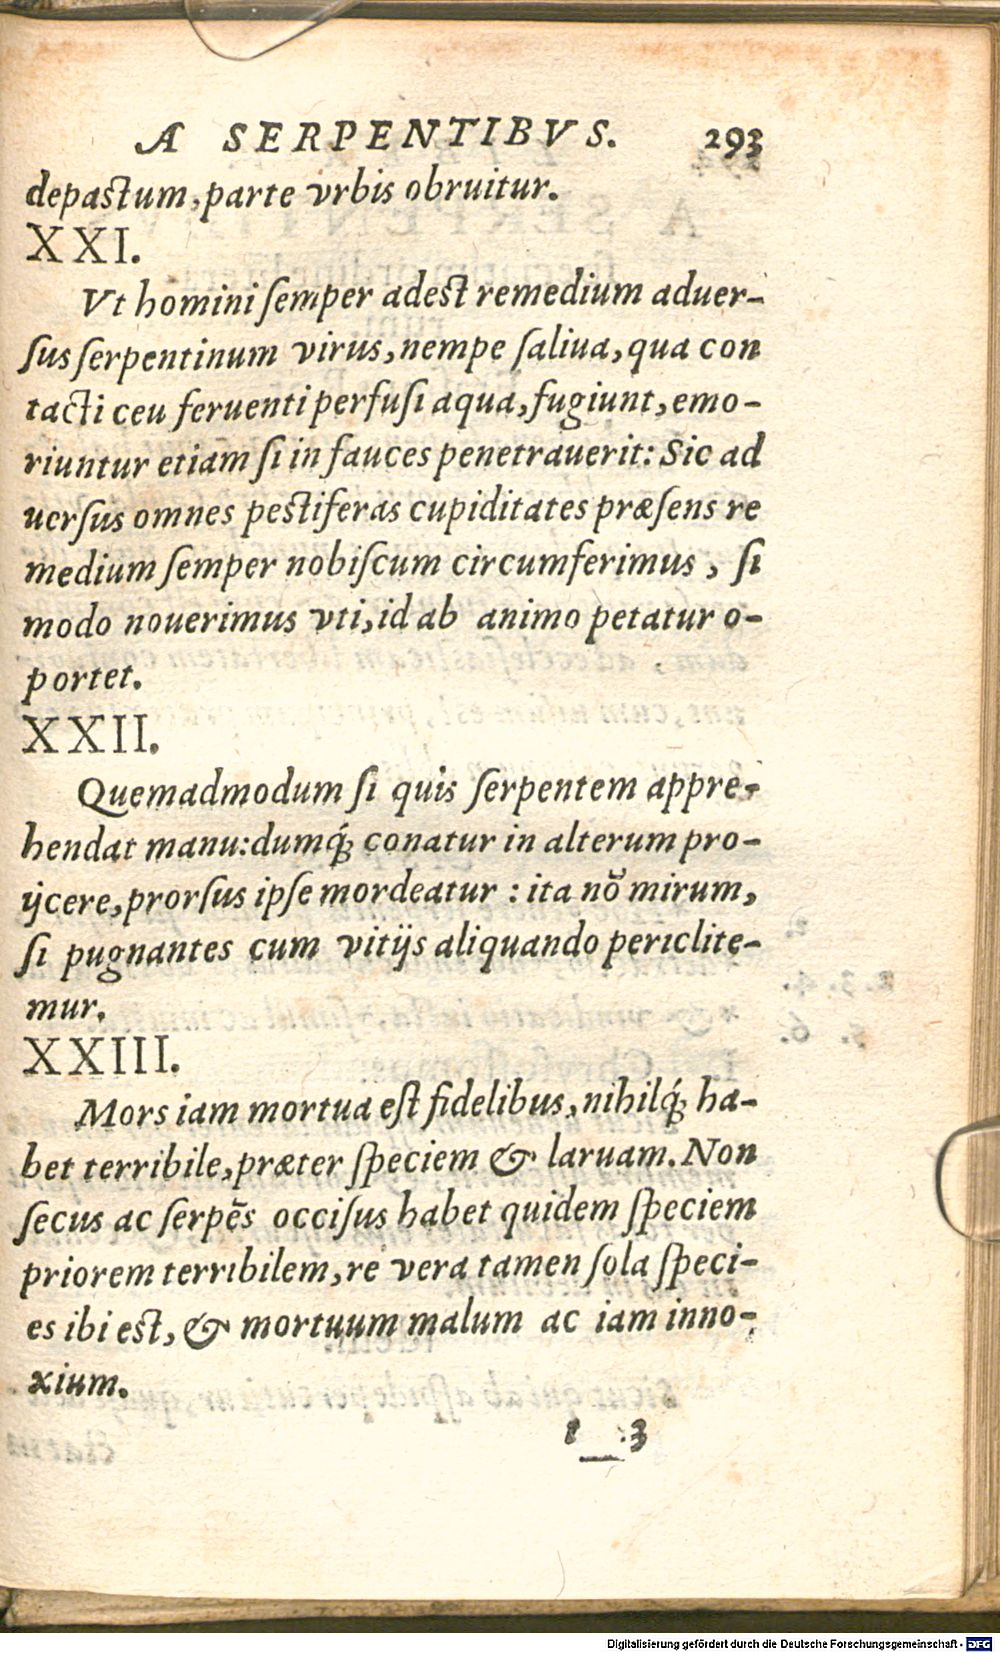 A SERPENTIBVS. 293
depastum, parte vrbis obruitur.
XXI.
Vt homini ſemper adest remedium aduer-
ſus ſerpentinum virus, nempe ſaliua, qua con
tacti ceu feruenti perfuſi aqua, fugiunt, emo-
riuntur etiam ſi in fauces penetrauerit: Sic ad
uerſus omnes pestiferas cupiditates præſens re
medium ſemper nobiſcum circumferimus, ſi
modo nouerimus vti, id ab animo petatur o-
portet.
XXII.
Quemadmodum ſi quis ſerpentem appre-
hendat manu: dumq́; conatur in alterum pro-
ijcere, prorſus ipſe mordeatur : ita nō mirum,
ſi pugnantes cum vitijs aliquando periclite-
mur.
XXIII.
Mors iam mortua eſt fidelibus, nihilq́; ha-
bet terribile, præter ſpeciem & laruam. Non
ſecus ac ſerpēs occiſus habet quidem ſpeciem
priorem terribilem, re vera tamen ſola ſpeci-
es ibi est, & mortuum malum ac iam inno-
xium.
3
Digitalisierung gefördert durch die Deutsche Forschungsgemeinschaft - DFG